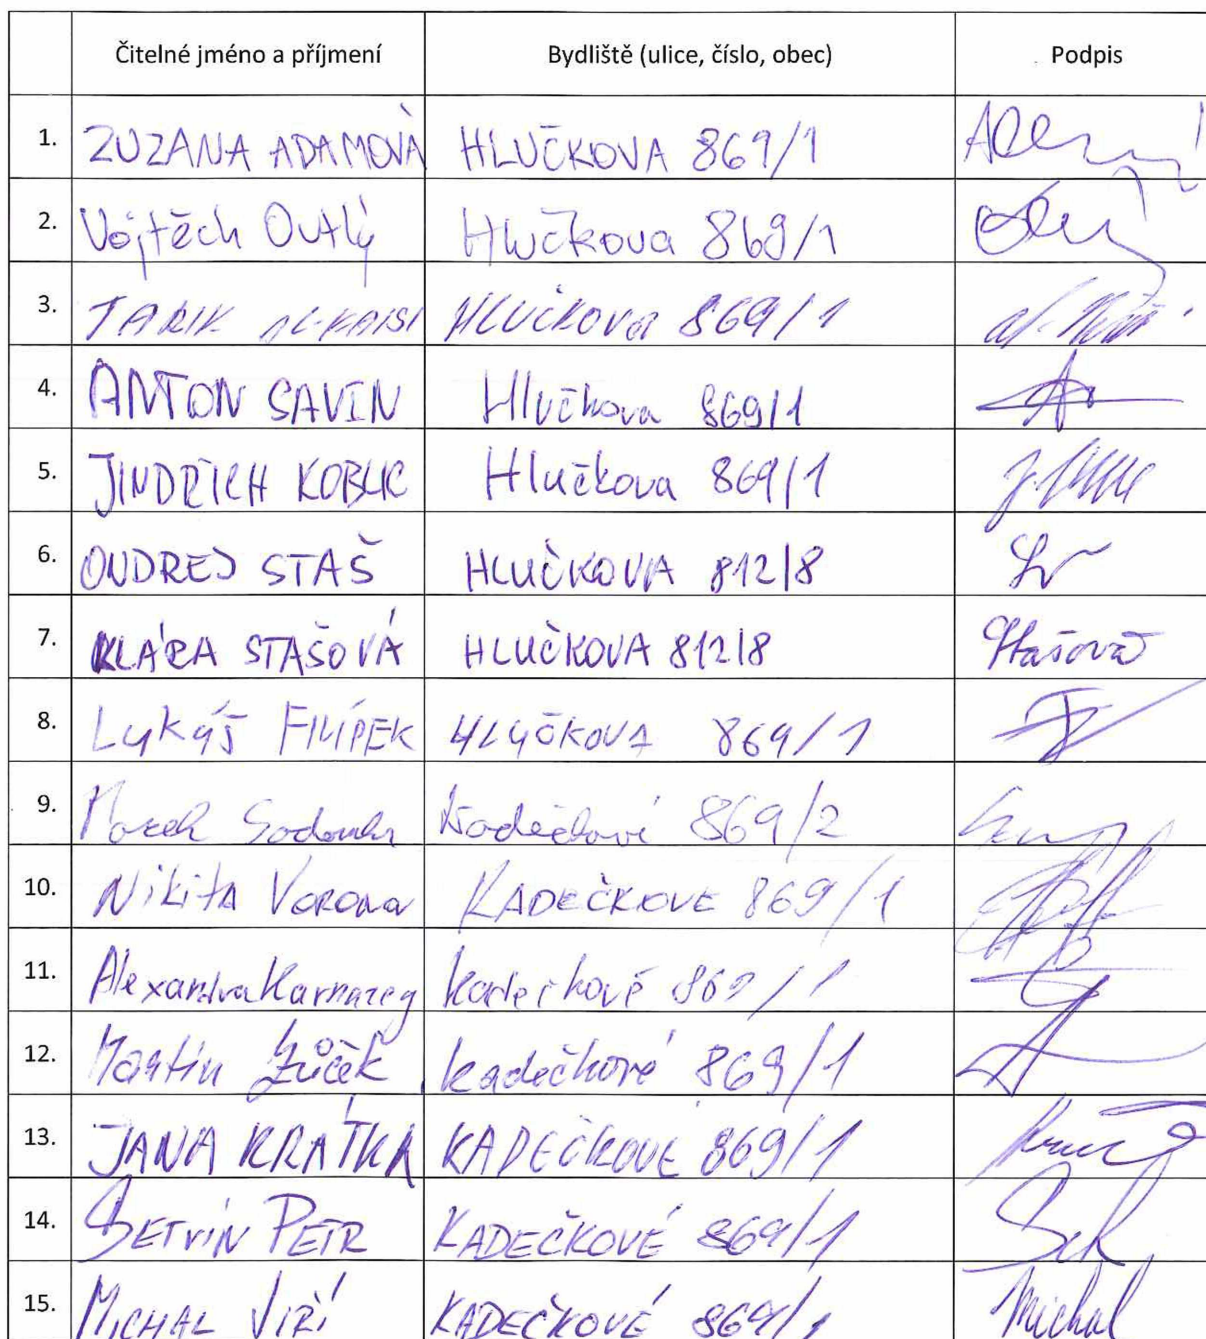 Čitelné jméno a příjmení Bydliště (ulice, číslo, obec) Podpis
1. ZUZANA ADAMOVÁ HLUČKOVA 869/1
2. Vojtěch Outlý Hlučkova 869/1
3. TARIK AL-KAISI HLUČKOVA 869/1
4. ANTON SAVIN Hlučkova 869/1
5. JINDŘICH KOBLIC Hlučkova 869/1
6. ONDREJ STAŠ HLUČKOVA 812/8
7. KLÁRA STAŠOVÁ HLUČKOVA 812/8 Stašová
8. Lukáš FILÍPEK HLUČKOVA 869/1
9. Marek 869/2
10. Nikita Vorona KADEČKOVE 869/1
11. Alexandra kadečkové 869/1
12. Martin kadečkové 869/1
13. JANA KRÁTKÁ KADEČKOVÉ 869/1
14. SETVÍN PETR KADEČKOVÉ 869/1
15. MICHAL JIŘÍ KADEČKOVÉ 869/1 Michal